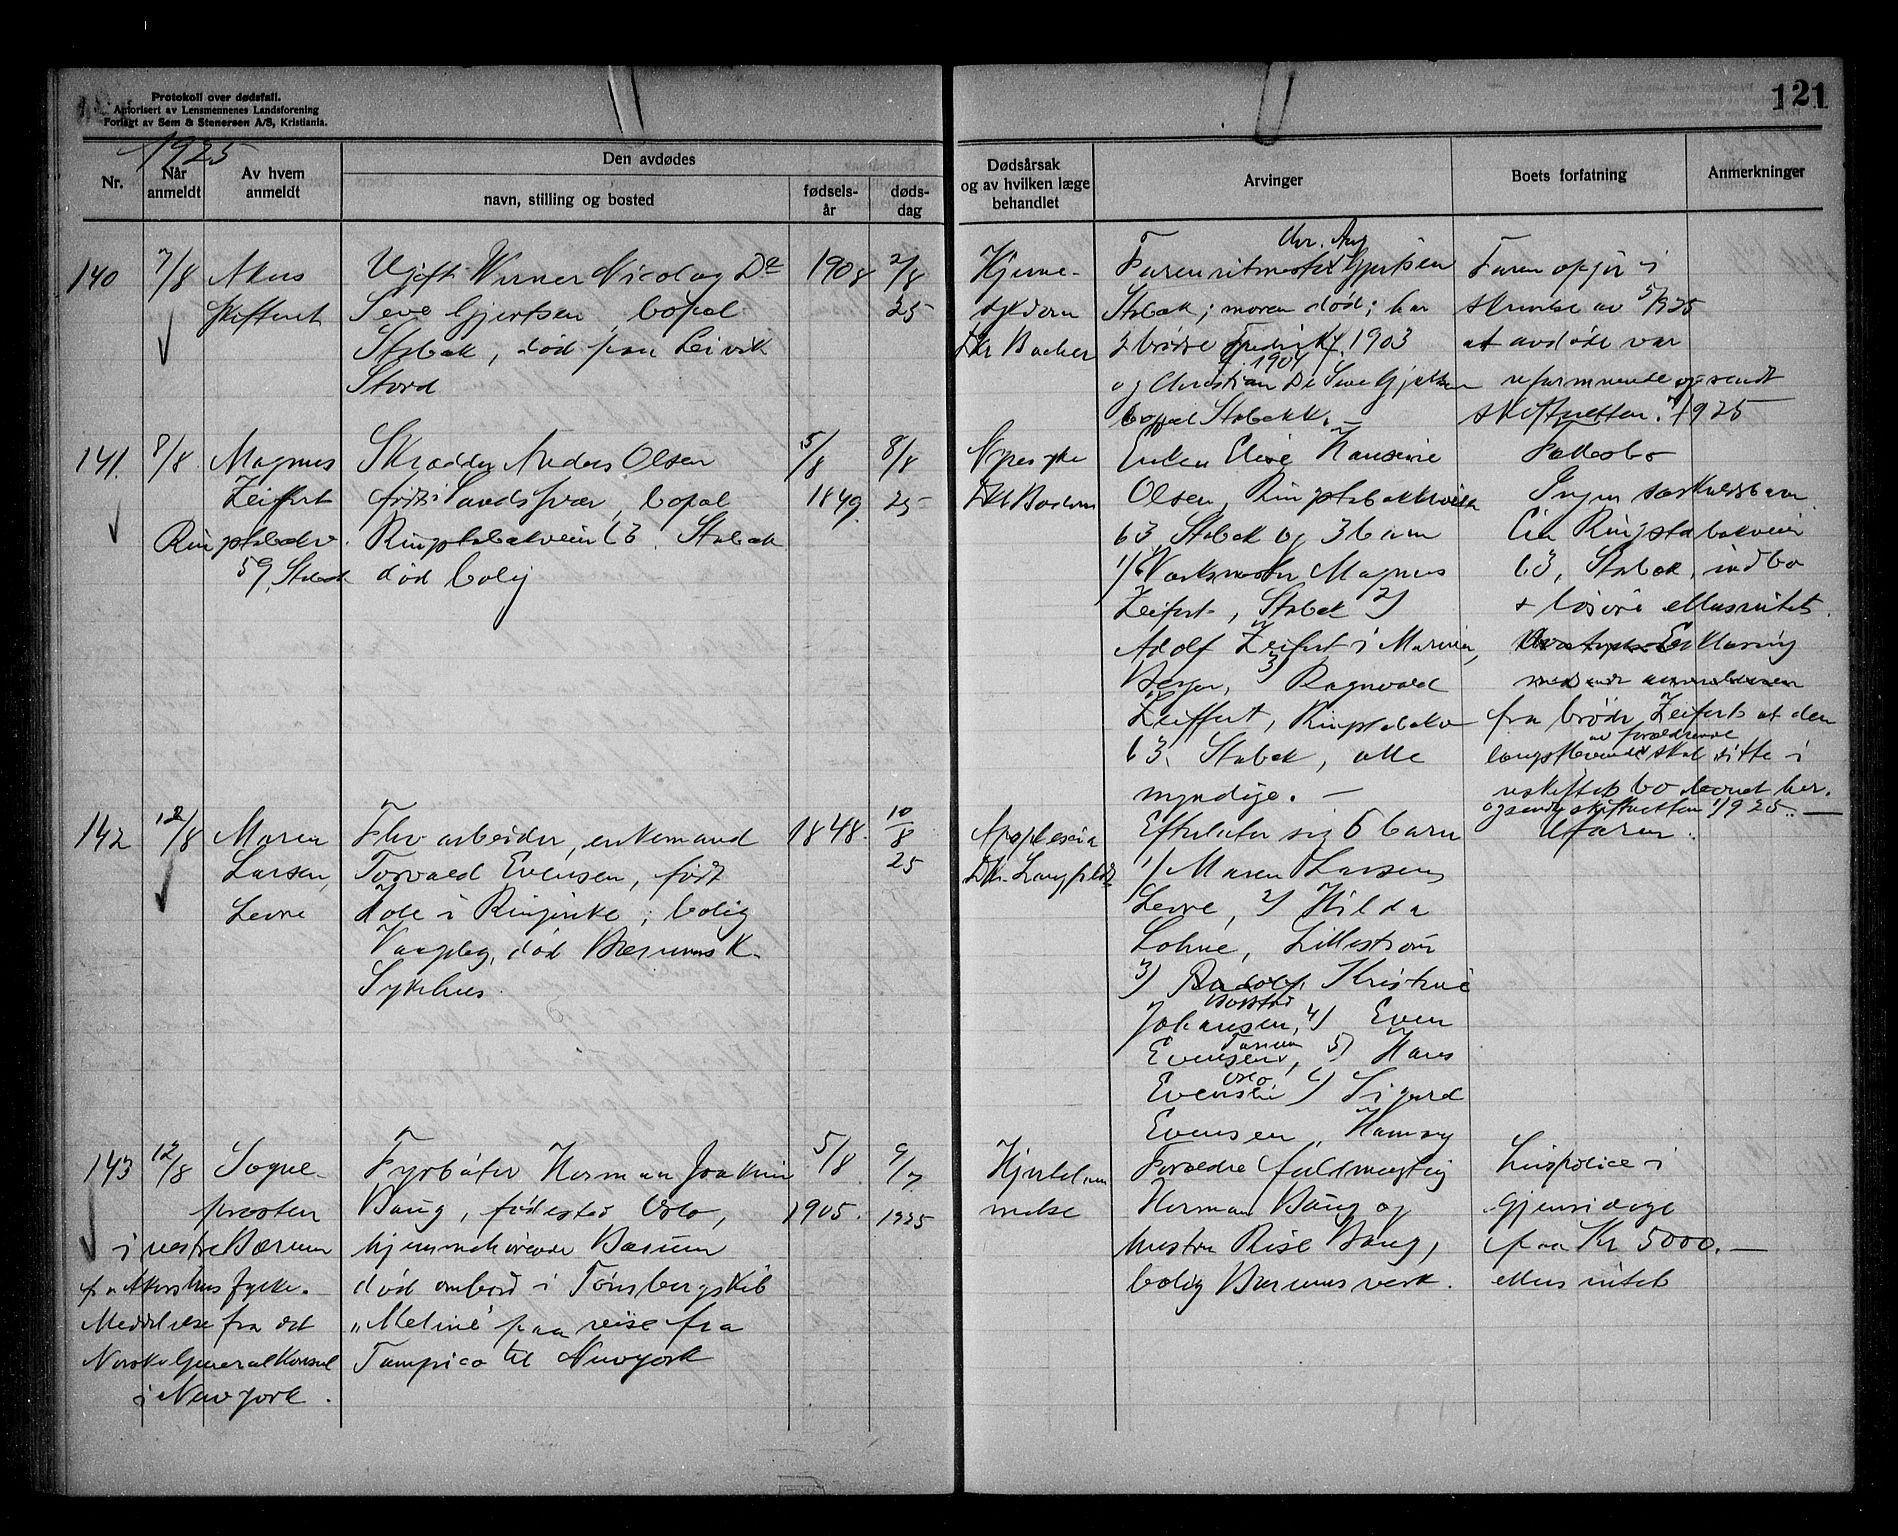 Protokoll over dødsfall.
Autorisert av Lensmennenes Landsforening
Forlagt av Sem & Stenersen A/S, Kristiania.
121
1925
Nr.
Når
anmeldt
Av hvem
anmeldt
Den avdødes
navn, stilling og bosted
fødsels-
år
døds-
dag
Dødsårsak
og av hvilken læge
behandlet
Arvinger
Boets forfatning
Anmerkninger
140
7/8
Akers
skifteret
Ugift Werner Nicolay De
Seve Gjertsen, bopæl
Stabæk, død paa
Stord
1908
2/8
25
Hjerne-
sykdom
Dr Backer
Chr. Aug
Faren ritmester Gjertsen
Stabæk; moren død; har
2 brødre Fredrik f. 1903
1904
og Christian De Seve Gjertsen
bopæl Stabækk. —
Faren opgir i
skrivelse av 5/8 925
at avdøde var
uformuende og sendt
skifteretten 7/8 1925
141.
8/8
Magnus
Zeiffert
Ringstabækv.
59, Stabæk
Skrædder Anders Olsen
født i Sandsvær, bopæl
Ringstabækveien 63. Stabæk
død bolig
5/8
1849.
8/8
25
Nyresyke
Enken Elise
Olsen, Ringstabækveien
63 Stabæk og 3 barn
1/ Verksmester Magnus
Zeifert, Stabæk 2/
Adolf Zeifert i
Bergen, 3/ Ragnvald
Zeiffert, Ringstabækv
63. Stabæk, alle
myndige. —
Fællesbo
Ingen særkuldsbarn
Ringstabækveien
63, Stabæk, indbo
+ løsøre ellers intet.
Erklæring
fra brødr. Zeifert at den
av forældrene
længstlevende skal sitte i
uskiftet bo levert her.
og sendt skifteretten 1925. —
142
12/8
Maren
Larsen,
Levre
Fhv arbeider, enkemand
Torvald Evensen, født
Hole i Ringerike; bolig
død Bærums K.
Sykehus.
1848.
10/8
25
Apoplexia
Dr. Langfeldt
Efterlater sig 6 barn
1/ Maren Larsen,
Levre, 2/ Hilda
Lohne, Lillestrøm
3/ Kristine
Johansen, 4/ Even
Tanum
Evensen, 5/ Hans
Oslo
Evensen 6/ Sigurd
Evensen,
Uformu.
143
12/8
Sogne-
presten
i vestre Bærum
fra Akershus fylke.
Meddelelse fra det
Norske Generalkonsul
i New York.
Fyrbøter Herman Joakim
Baug, fødested Oslo,
hjemmehørende Bærum
død ombord i Tønsbergskib
"Meline" paa reise fra
Tampico til New York
5/8
1905.
9/7
1925
Hjertelam
melse
Forældre fuldmægtig
Herman Baug og
hustru Rise Baug,
bolig Bærums verk.
Livspolice i
Gjensidige
paa Kr 5000. —
ellers intet